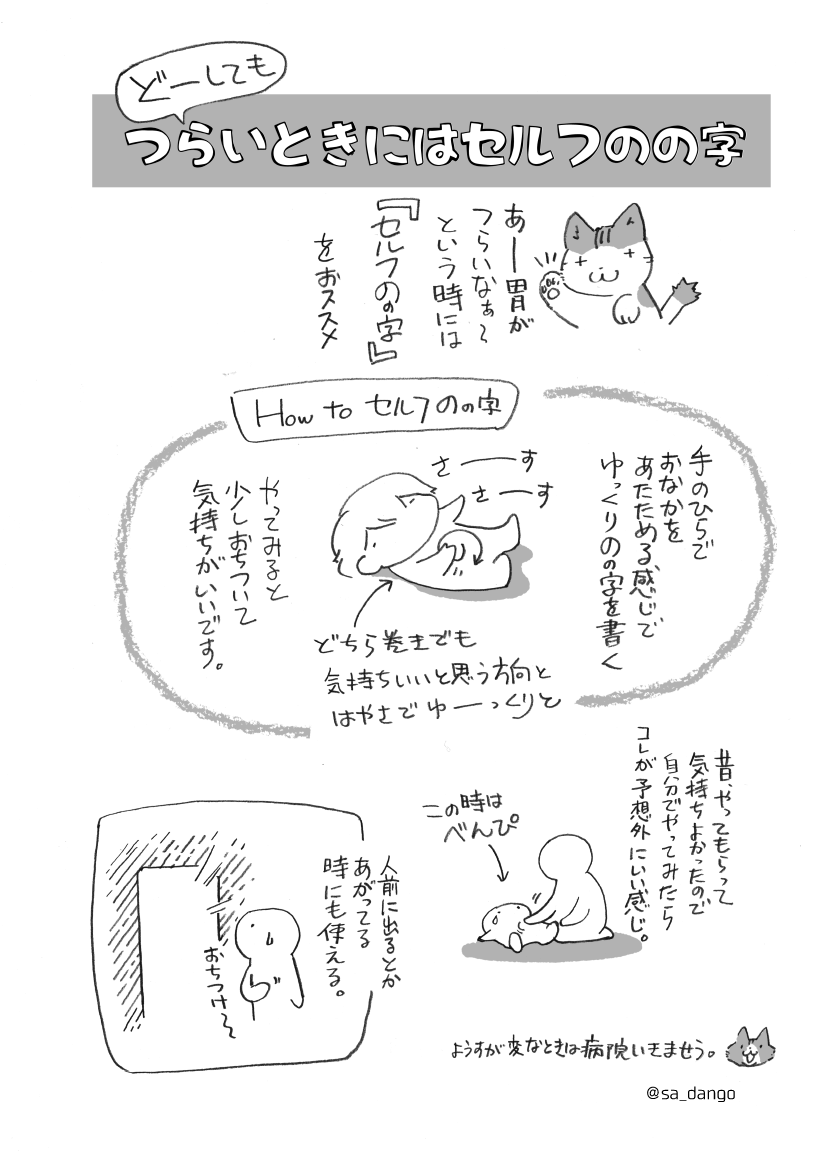 どーしても
つらいときにはセルフのの字
あー胃が
つらいなぁ～
という時には
『セルフのの字』
をおススメ
How to セルフのの字
手のひらで
おなかを
あたためる感じで
ゆっくりのの字を書く
さーーす
さーーす
どちら巻きでも
気持ちいいと思う方向と
はやさでゆーっくりと
やってみると
少しおちついて
気持ちがいいです。
昔、やってもらって
気持ちよかったので
自分でやってみたら
コレが予想外にいい感じ。
この時は
べんぴ
人前に出るとか
あがってる
時にも使える。
おちつけ～
ようすが変なときは病院いきませう。
@sa_dango